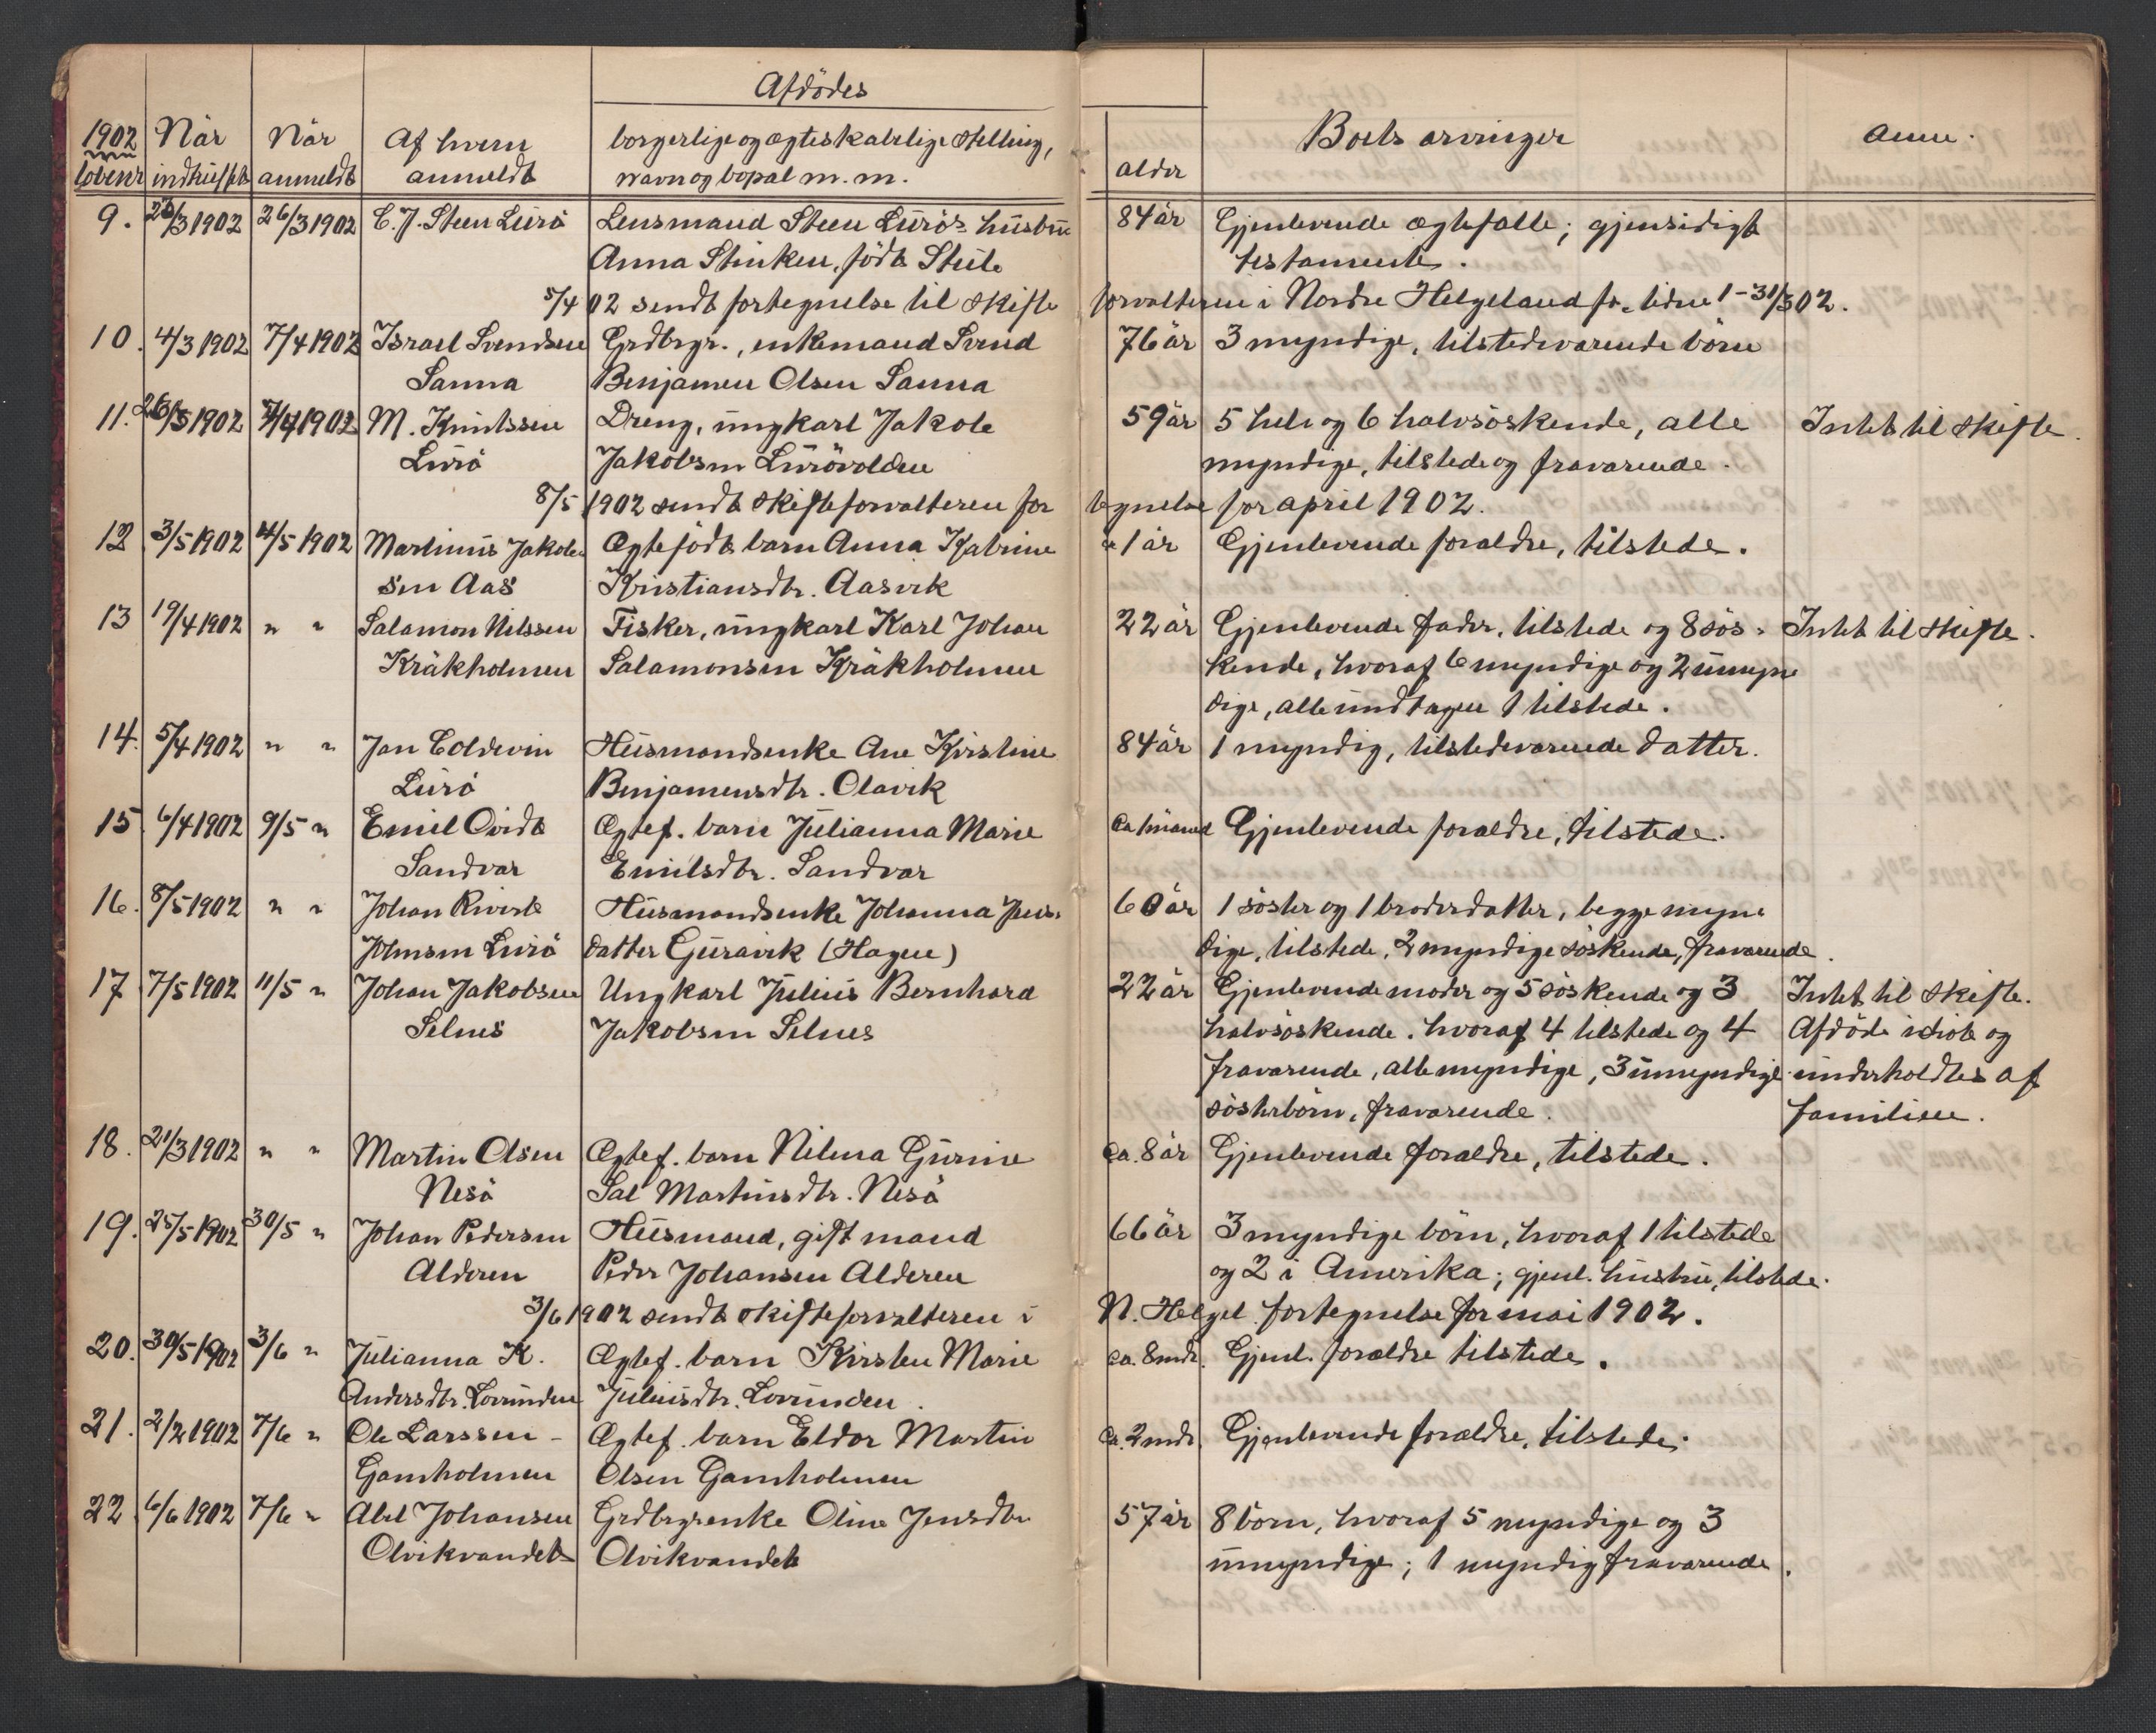 Afdödes
1902 Når När Af hvem borgerlige og ægteskabelige stilling, alder Boets arvinger anm.
löbenr indtruffet anmeldt anmeldt navn og bopæl m.m.
9. 26/3 1902 26/3 1902 C. J. Steen Lurö Lensmand Steen Lurös hustru 84 år Gjenlevende ægtefælle; gjensidigt
Anna Steen, födt testamente.
5/4 02 sendt fortegnelse til skifteforvalteren i Nordre Helgeland for tiden 1-31/3 02.
10. 4/3 1902 7/4 1902 Israel Svendsen Grdbrgr., enkemand Svend 76 år 3 myndige, tilstedeværende börn
Sanna Benjamen Olsen Sanna
11. 26/3 1902 7/4 1902 M. Knutssen Dreng, ungkarl Jakob 59 år 5 hel- og 6 halvsöskende, alle Intet til skifte.
Lurö Jakobsen Lurövolden myndige, tilstede og fraværende.
8/5 1902 sendt skifteforvalteren fortegnelse for april 1902.
12 3/5 1902 4/5 1902 Martinus Jakob- Ægtefödt barn Anna Katrine 1 år Gjenlevende forældre, tilstede.
sen Aas Kristiansdtr. Aasvik
13 19/4 1902 " " Salamon Nilssen Fisker, ungkarl Karl Johan 22 år Gjenlevende fader, tilstede og 8 sös- Intet til skifte.
Kråkholmen Salamonsen Kråkholmen kende, hvoraf 6 myndige og 2 umyn
dige, alle undtagen 1 tilstede.
14. 5/4 1902 " " Jan Coldevin Husmandsenke Ane Kirstine 84 år 1 myndig, tilstedeværende datter.
Lurö Benjamensdtr. Olavik
15. 6/4 1902 9/5 " Emil Ovidt Ægtef. barn Julianna Marie Ca 1 måned Gjenlevende forældre, tilstede.
Sandvær Emilsdtr. Sandvær
16. 8/5 1902 " " Johan Rivert Husmandsenke Johanna Jens- 60 år 1 söster og 1 broderdatter, begge myn
Johnsen Lurö datter Guravik (Hagen) dige, tilstede, 2 myndige söskende, fraværende.
17 7/5 1902 11/5 " Johan Jakobsen Ungkarl Julius Bernhard 22 år Gjenlevende moder og 5 söskende og 3 Intet til skifte.
Selnes Jakobsen Selnes halvsöskende. hvoraf 4 tilstede og 4 Afdöde idiot og
fraværende, alle myndige, 3 umyndige underholdtes af
sösterbörn, fraværende. familien.
18. 21/3 1902 " " Martin Olsen Ægtef. barn Nilma Gurine Ca. 8 år Gjenlevende forældre, tilstede.
Nesö Sal Martinsdtr. Nesö
19. 25/5 1902 30/5 " Johan Pedersen Husmand, gift mand 66 år 3 myndige börn, hvoraf 1 tilstede
Alderen Peder Johansen Alderen og 2 i Amerika; gjenl. hustru, tilstede.
3/6 1902 sendt skifteforvalteren i N. Helgel. fortegnelse for mai 1902.
20. 30/5 1902 3/6 " Julianna K. Ægtef. barn Kirsten Marie ca. 8 mdr. Gjenl. forældre tilstede.
Andersdtr. Lovunden Juliusdtr. Lovunden.
21. 2/2 1902 7/6 " Ole Larssen Ægtef. barn Eldor Martin ca. 2 mdr. Gjenlevende forældre, tilstede.
Gamholmen Olsen Gamholmen
22 6/6 1902 7/6 " Abel Johansen Grdbrgrenke Oline Jensdtr 57 år 8 börn, hvoraf 5 myndige og 3
Olvikvandet Olvikvandet umyndige; 1 myndig fraværende.